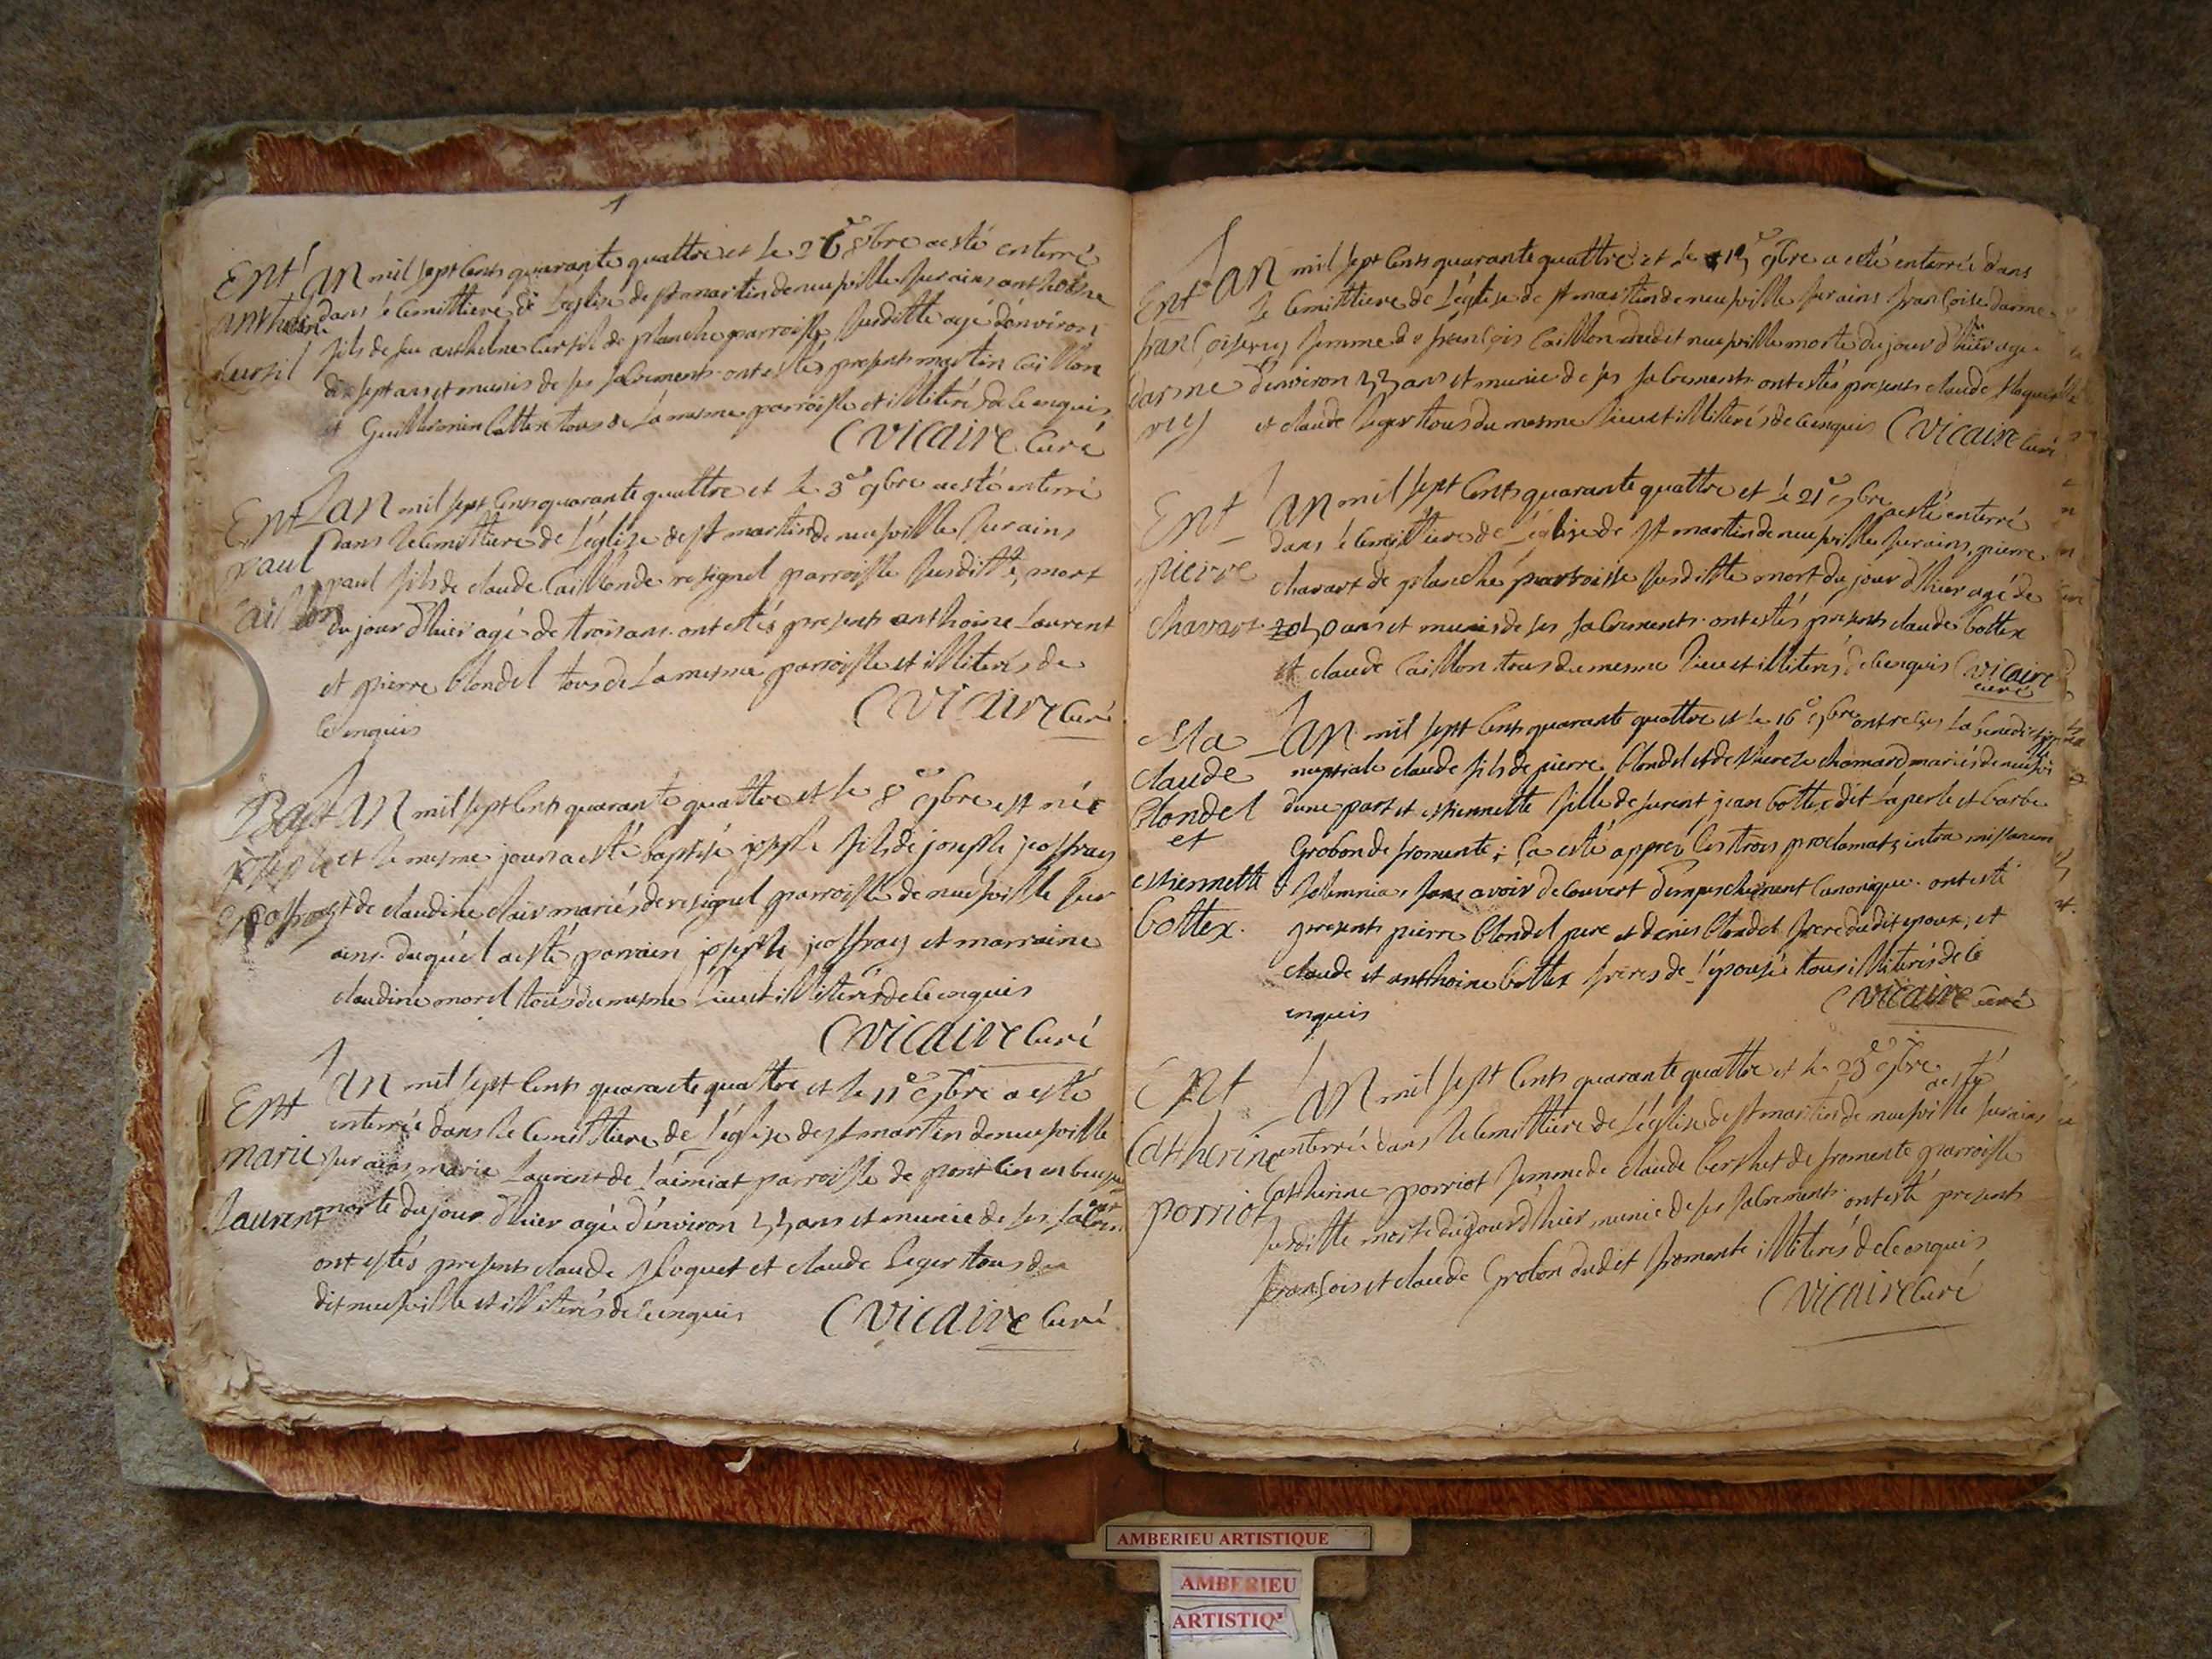 Ent
anthelme
Cursil
Lan mil sept Cents quarante quattre et le 26e 8bre a esté enterré
dans le Cemittiere de L'eglise de st martin de neufville sur ains anthelme
fils de feu anthelme Cursil de planche parroisse susditte agé d'environ
dix sept ans et munis de ses sacrements ont estés presents martin Caillon
et Guilliermin Cottex tous de la mesme parroisse et illiterés de ce enquis
C vicaire Curé
Ent
paul
Caillon
Lan mil sept Cents quarante quattre et le 3e 9bre a esté enterré
dans le Cemittiere de L'eglize de st martin de neufville sur ains
paul fils de claude Caillon de resignel parroisse susditte, mort
du jour d'hier agé de trois ans ont estés presents anthoine Laurent
et pierre blondel tous de la mesme parroisse et illiterés de
ce enquis
C vicaire Curé
Bapt
joseph
jeoffray
Lan mil sept Cents quarante quattre et le 8e 9bre est née
et le mesme jour a esté baptisé joseph fils de joseph jeoffray
et de claudine clair mariés de resignel parroisse de neufville sur
ains duquel a esté parrain joseph jeoffray et marraine
claudine morel tous du mesme lieu et illiterés de ce enquis
C vicaire Curé
Ent
marie
Laurent
Lan mil sept Cents quarante quattre et le 11e 9bre a esté
enterrée dans le Cemittiere de L'eglize de st martin de neufville
sur ains marie Laurent de parroisse de
morte du jour d'hier agée d'environ 55 ans et munie de ses sacrem
ont estés presents claude floquet et claude Leger tous du
dit neufville et illiterés de ce enquis
C vicaire Curé
Ent
francoise
darme
Lan mil sept Cents quarante quattre et le 9bre a esté enterrée dans
le Cemittiere de L'eglise de st martin de neufville sur ains francoise darme
femme de francois Caillon dudit neufville morte du jour d'hier agée
d'environ 55 ans et munie de ses sacrements ont estés presents claude floquet
et claude Leger tous du mesme lieu et illiterés de ce enquis
C vicaire Curé
Ent
pierre
chavart
Lan mil sept Cents quarante quattre et le 21e 9bre a esté enterré
dans le Cemittiere de L'eglise de st martin de neufville sur ains pierre
chavart de planche parroisse susditte mort du jour d'hier agé de
50 ans et munis de ses sacrements ont estés presents claude bottex
et claude Caillon tous du mesme lieu et illiterés de ce enquis
C vicaire
curé
Ma
claude
blondel
et
estiennette
bottex.
Lan mil sept Cents quarante quattre et le 16e 9bre ont reçus la benediction
nuptiale claude fils de pierre blondel et de chamard mariés de neufvi
dune part et estiennette fille de furent jean bottex dit Laperle et barbe
Grobon de fromente; ca esté apprés les trois proclamats intra missarum
solemnia, sans avoir decouvert d'empeschement Canonique. ont esté
presents pierre blondel pere et denis blondel frere dudit epoux, et
claude et anthoine bottex freres de L'epousée tous illiterés de ce
enquis
C vicaire curé
Ent
Catherine
porriot
Lan mil sept Cents quarante quattre et le 23e 9bre a esté
enterrée dans le Cemittiere de L'eglise de st martin de neufville sur ains
Catherine porriot femme de claude berthet de fromente parroisse
susditte morte du jourd'hier munie de ses sacrements ont esté presents
francois et claude Grobon dudit fromente illiterés de ce enquis
C vicaire Curé
AMBERIEU ARTISTIQUE
AMBERIEU
ARTISTIQ